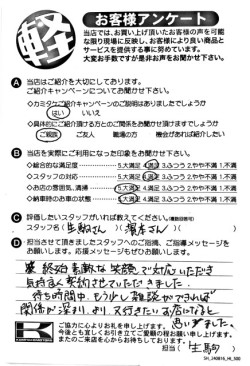 軽
お客様アンケート
当店では、お買い上げ頂いたお客様の声を可能
な限り現場に反映し、お客様により良い商品と
サービスを提供する事に努めています。
大変お手数ですが是非お声をお聞かせ下さい。
A 当店はご紹介を大切にしております。
ご紹介キャンペーンについてお聞かせ下さい。
◇カミタケご紹介キャンペーンのご説明はありましたでしょうか
はい いいえ
◇具体的にご紹介頂ける方とのご関係をお聞かせ頂けますでしょうか
ご親族 ご友人 職場の方 機会があれば紹介したい
B 当店を実際にご利用になった印象をお聞かせ下さい。
◇総合的な満足度 5.大満足 4.満足 3.ふつう 2.やや不満 1.不満
◇スタッフの対応 5.大満足 4.満足 3.ふつう 2.やや不満 1.不満
◇お店の雰囲気、清掃 5.大満足 4.満足 3.ふつう 2.やや不満 1.不満
◇納車時のお車の状態 5.大満足 4.満足 3.ふつう 2.やや不満 1.不満
C 評価したいスタッフがいれば教えてください。(複数回答可)
スタッフ名( 生駒さん )( さん )
D 担当させて頂きましたスタッフへのご指摘、ご指導メッセージを
お願いします。応援メッセージもぜひお願いします。
終始素敵な笑顔で対応いただき
気持よく契約させていただきました。
待ち時間中、もう少し雑談ができれば
関係が深まり、より又行きたいお店になると
思いました。
K
ご協力に心よりお礼を申し上げます。
今後とも宜しくお引き立てご愛顧の程お願い申し上げます。
またのご来店を心からお待ちしております。
担当( 生駒 )